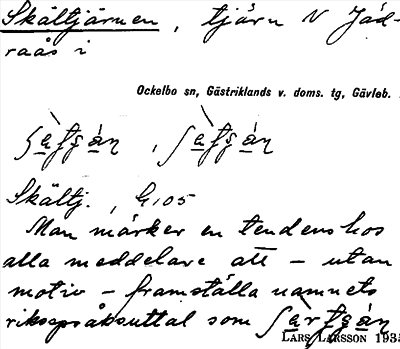 Skältjärnen, tjärn N Jäd-
raås i
Ockelbo sn, Gästriklands v. doms. tg, Gävleb.
Skältj., G.105
Man märker en tendens hos
alla meddelare att – utan
motiv – framställa namnets
riksspråksuttal som
LARS LARSSON 193